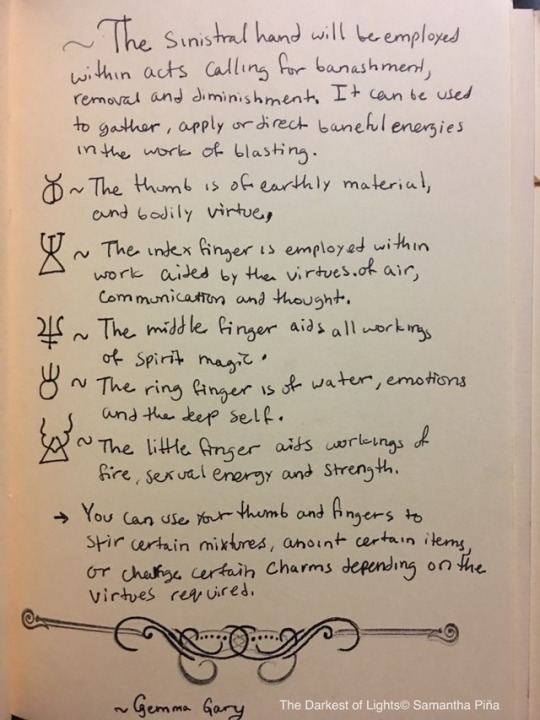 ~ The sinistral hand will be employed
within acts calling for banashment,
removal and diminishment. It can be used
to gather, apply or direct baneful energies
in the work of blasting.
~ The thumb is of earthly material,
and bodily virtue,
~ The index finger is employed within
work aided by the virtues of air,
communication and thought.
~ The middle finger aids all workings
of spirit magic.
~ The ring finger is of water, emotions
and the deep self.
~ The little finger aids workings of
fire, sexual energy and strength.
→ You can use your thumb and fingers to
stir certain mixtures, anoint certain items,
or charge certain charms depending on the
virtues required.
~ Gemma Gary
The Darkest of Lights© Samantha Piña